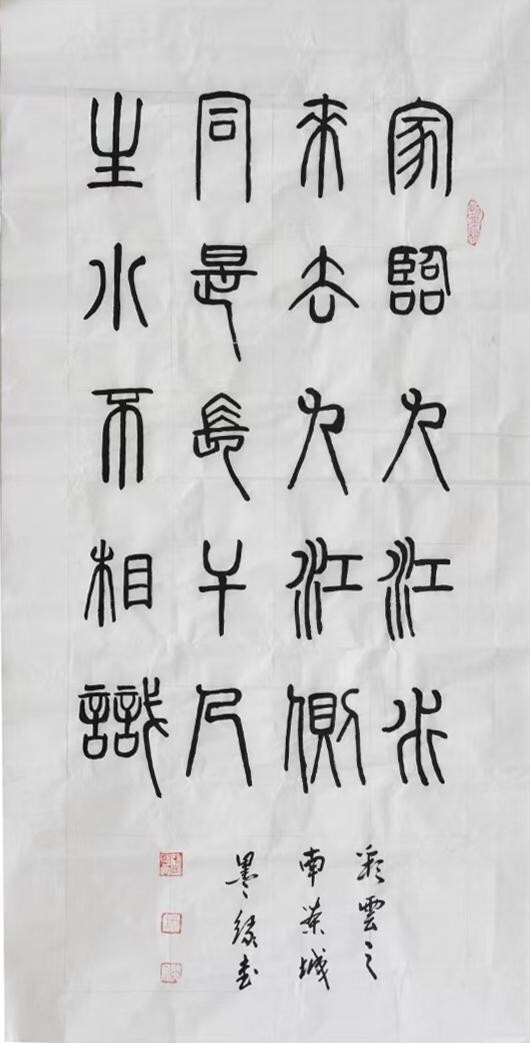 家臨九江水
來去九江側
同是長干人
生小不相識
彩雲之
南城
墨緣書